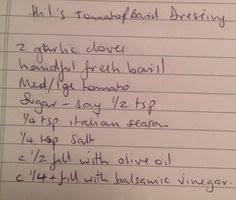 Hil's Tomato/Basil Dressing
2 garlic cloves
handful fresh basil
Med/lge tomato
Sugar - say 1/2 tsp
1/4 tsp italian season
1/4 tsp Salt
c 1/2 fill with olive oil
c 1/4 + fill with balsamic vinegar.